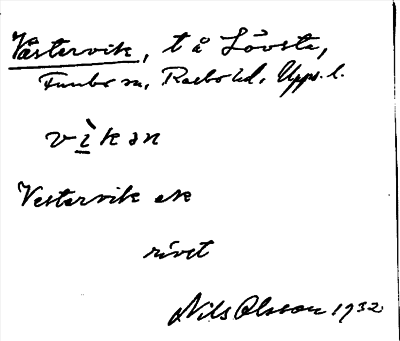 Västervik, t å Lövsta,
Funbo sn, Rasbo hd, Upps. l.
vìkən
Vestervik ek
rivet
Nils Olsson 1932